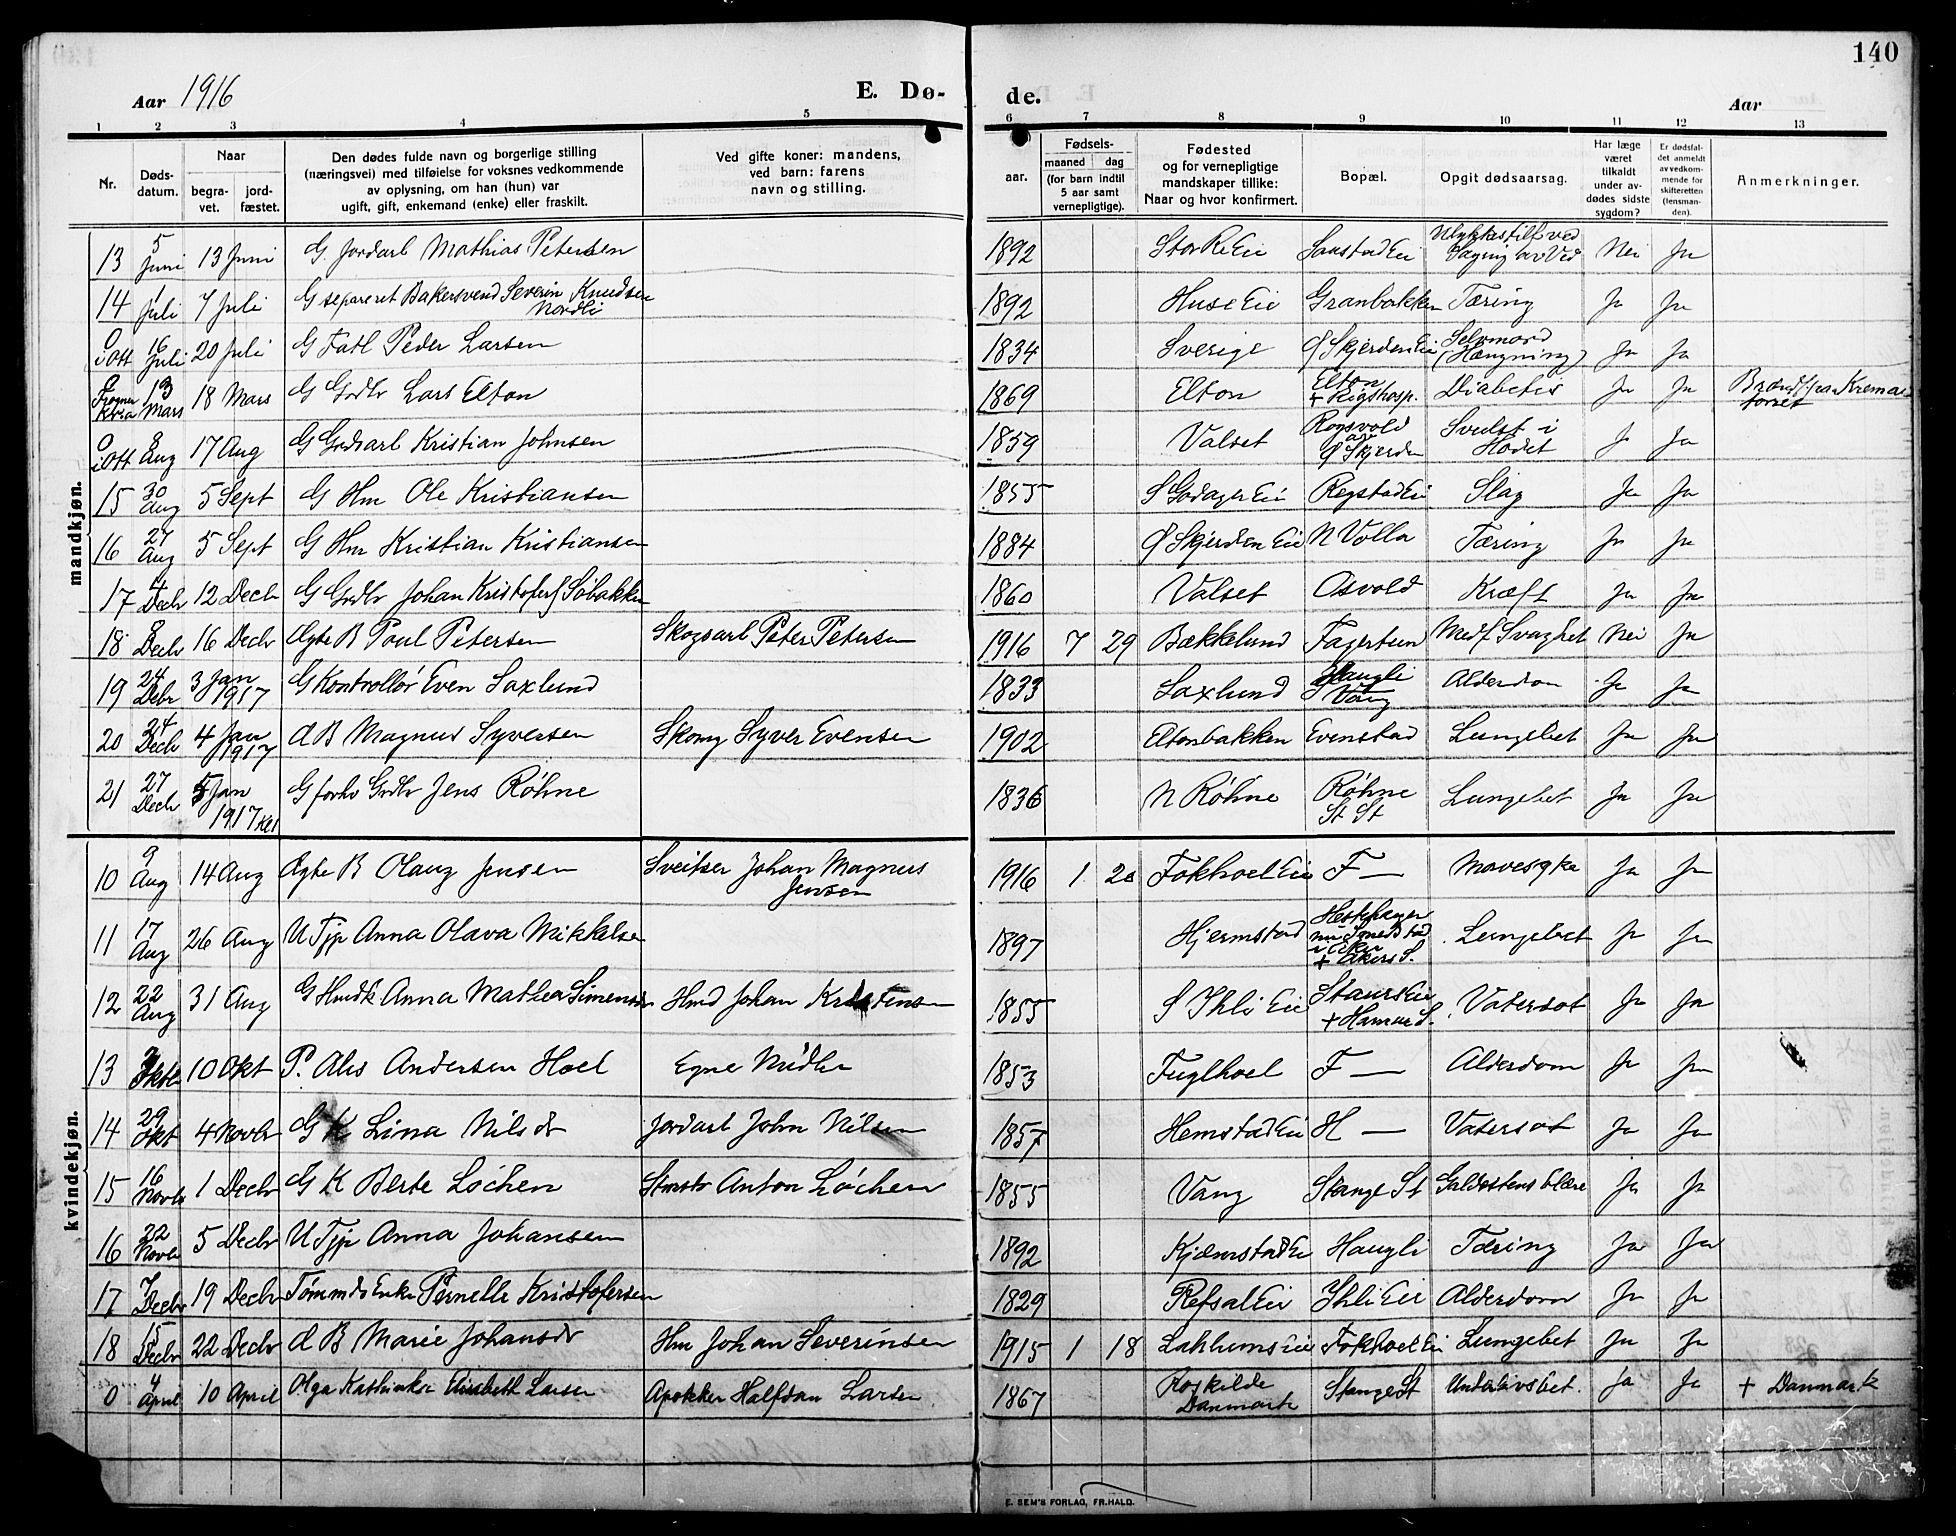 140
Aar 1916 E. Dø- de. Aar
1 2 3 4 5 6 7 8 9 10 11 12 13
Nr. Døds-datum. Naar begra-vet. jord-fæstet. Den dødes fulde navn og borgerlige stilling (næringsvei) med tilføielse for voksnes vedkommende av oplysning, om han (hun) var ugift, gift, enkemand (enke) eller fraskilt. Ved gifte koner: mandens, ved barn: farens navn og stilling. Fødsels- aar. maaned dag (for barn indtil 5 aar samt vernepligtige). Fødested og for vernepligtige mandskaper tillike: Naar og hvor konfirmert. Bopæl. Opgit dødsaarsag. Har læge været tilkaldt under av-dødes sidste sygdom? Er dødsfal-det anmeldt av vedkom-mende for skifteretten (lensman-den). Anmerkninger.
mandkjøn.
13 5 Juni 13 Juni G. Jordarb Mathias Petersen 1892 StorReEie SaastadEie Ulykkestilf ved Sagning av Ved Nei Ja
14 1 Juli 7 Juli G separeret Bakersvend Severin Knudsen Nordli 1892 HuseEie Granbakken Tæring Ja Ja
0 i Ott 16 Juli 20 Juli G Fatl Peder Larsen 1834 Sverige Ø SkjerdenEie Selvmord (Hængning) Ja Ja
0 Frogner Kr.a 13 Mars 18 Mars G Grdbr Lars Elton 1869 Elton Elton + Rigshosp. Diabetes Ja Ja Brændt paa Krematoriet
0 i Ott 8 Aug 17 Aug G Grdsarb Kristian Johnsen 1859 Valset Rogsvold av Ø Skjerden Svulst i Hodet Ja Ja
15 30 Aug 5 Sept G Hm Ole Kristiansen 1855 S GodagerEie RegstadEie Slag Ja Ja
16 27 Aug 5 Sept G Hm Kristian Kristiansen 1884 Ø Skjerden Eie N Volla Tæring Ja Ja
17 4 Decbr 12 Decbr G Grdbr Johan Kristofers Søbakken 1860 Valset Osvold Kræft Ja Ja
18 8 Decbr 16 Decbr Ægte B Poul Petersen Skogsarb Peter Petersen 1916 7 29 Bækkelund Fagertun Medf Svaghet Nei Ja
19 24 Debr 3 Jan 1917 G Kontrollør Even Saxlund 1833 Saxlund Haugli Vang Alderdom Ja Ja
20 24 Decbr 4 Jan 1917 d B Magnus Syversen Skomg Syver Evensen 1902 Eltonbakken Evenstad Lungebet Ja Ja
21 27 Decbr 5 Jan 1917 G forhv Grdbr Jens Røhne 1836 N Røhne Røhne St St Lungebet Ja Ja
kvindekjøn.
10 9 Aug 14 Aug Ægte B Olaug Jensen Sveitser Johan Magnus Jensen 1916 1 20 FokhoelEie F — Mavesyke Ja Ja
11 17 Aug 26 Aug U Tjp Anna Olava Mikkelsen 1897 Hjermstad + Akers S. Lungebet Ja Ja
12 22 Aug 31 Aug G Hmdk Anna Mathea Simensdr Hmd Johan Kristensen 1855 S Ihle Eie StaursEie + Hamar S. Vatersot Ja Ja
13 2 Oktb 10 Okt P. Alis Andersen Hoel Egne Midler 1853 Fuglhoel F — Alderdom Ja Ja
14 29 Okt 4 Novbr G K Lina Nilsdr Jordarb John Nilsen 1857 HemstadEie H — Vatersot Ja Ja
15 16 Novbr 1 Decbr G K Berte Løchen Stmstr Anton Løchen 1855 Vang Stange St Galdestensblære Ja Ja
16 22 Novbr 5 Decbr U Tjp Anna Johansen 1892 KjemstadEie Haugli Tæring Ja Ja
17 7 Decbr 19 Decbr TømmdsEnke Pernelle Kristofersen 1829 RefsalEie IhleEie Alderdom Ja Ja
18 15 Decbr 22 Decbr d B Marie Johansdr Hm Johan Severinsen 1915 1 18 LakkumsEie FokhoelEie Lungebet Ja Ja
0 4 April 10 April Olga Kathinka Elisabeth Larsen Apoteker Halfdan Larsen 1867 Roskilde Danmark Stange St Underlivsbet. Ja Ja + Danmark
E. SEM'S FORLAG, FR.HALD.